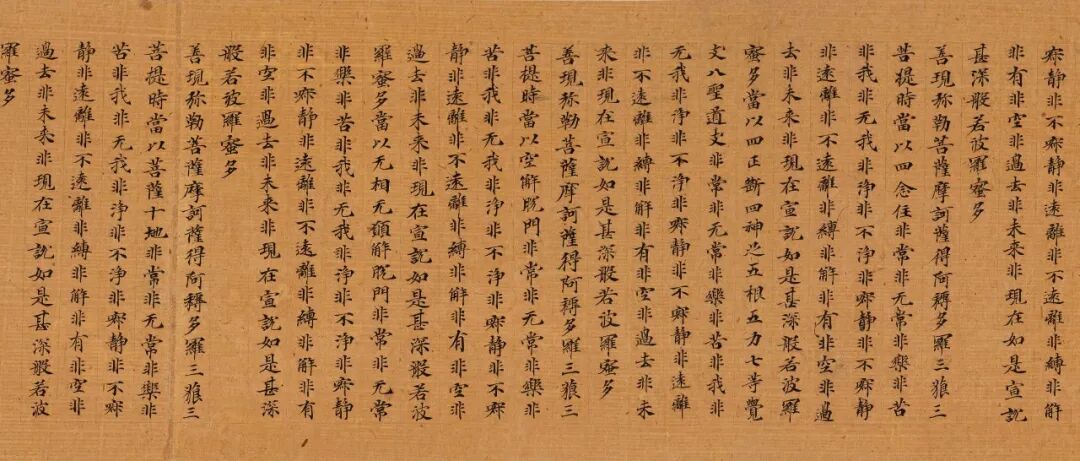 寂静非不寂静非遠離非不遠離非縛非解
非有非空非過去非未来非現在如是宣説
甚深般若波羅蜜多
善現弥勒菩薩摩訶薩得阿耨多羅三藐三
菩提時當以四念住非常非无常非樂非苦
非我非无我非浄非不浄非寂静非不寂静
非遠離非不遠離非縛非解非有非空非過
去非未来非現在宣説如是甚深般若波羅
蜜多當以四正斷四神足五根五力七等覺
支八聖道支非常非无常非樂非苦非我非
无我非浄非不浄非寂静非不寂静非遠離
非不遠離非縛非解非有非空非過去非未
来非現在宣説如是甚深般若波羅蜜多
善現弥勒菩薩摩訶薩得阿耨多羅三藐三
菩提時當以空解脱門非常非无常非樂非
苦非我非无我非浄非不浄非寂静非不寂
静非遠離非不遠離非縛非解非有非空非
過去非未来非現在宣説如是甚深般若波
羅蜜多當以无相无願解脱門非常非无常
非樂非苦非我非无我非浄非不浄非寂静
非不寂静非遠離非不遠離非縛非解非有
非空非過去非未来非現在宣説如是甚深
般若波羅蜜多
善現弥勒菩薩摩訶薩得阿耨多羅三藐三
菩提時當以菩薩十地非常非无常非樂非
苦非我非无我非浄非不浄非寂静非不寂
静非遠離非不遠離非縛非解非有非空非
過去非未来非現在宣説如是甚深般若波
羅蜜多